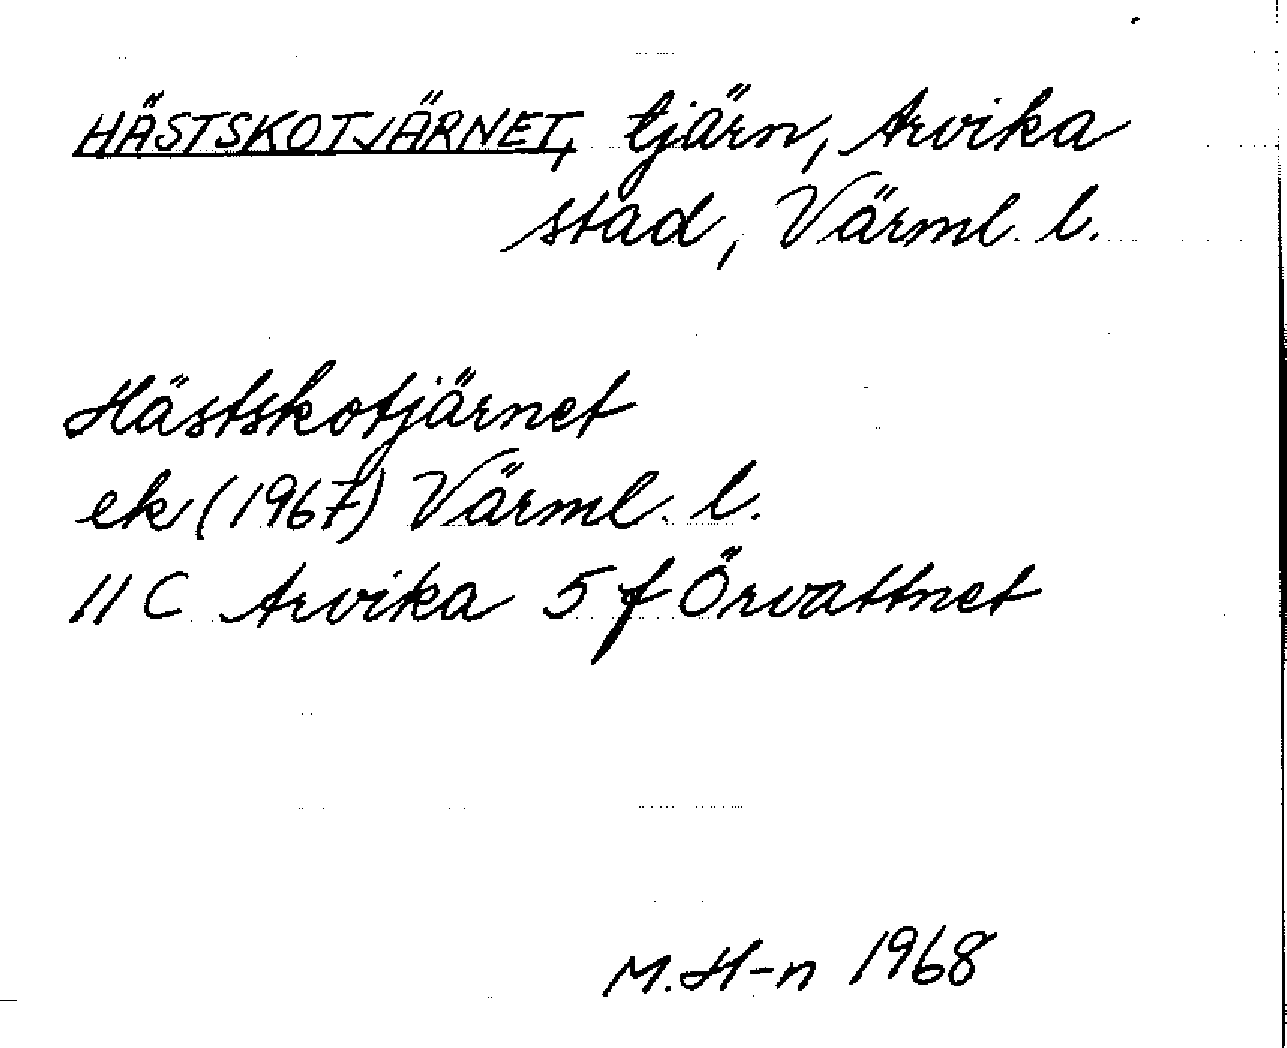 HÄSTSKOTJÄRNET, tjärn, Arvika
stad, Värml. l.
Hästskotjärnet
ek (1967) Värml. l.
11 C Arvika 5 f Örvattnet
M. H-n 1968